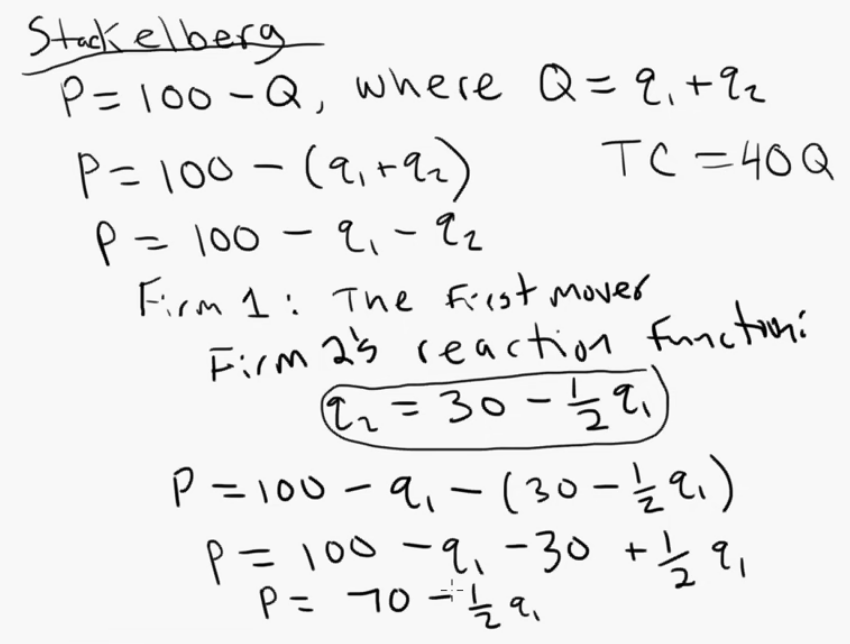 Stackelberg
P = 100 - Q, where Q = q₁ + q₂
P = 100 - (q₁ + q₂) TC = 40Q
P = 100 - q₁ - q₂
Firm 1: The First mover
Firm 2's reaction function:
q₂ = 30 - ½ q₁
P = 100 - q₁ - (30 - ½ q₁)
P = 100 - q₁ - 30 + ½ q₁
P = 70 - ½ q₁